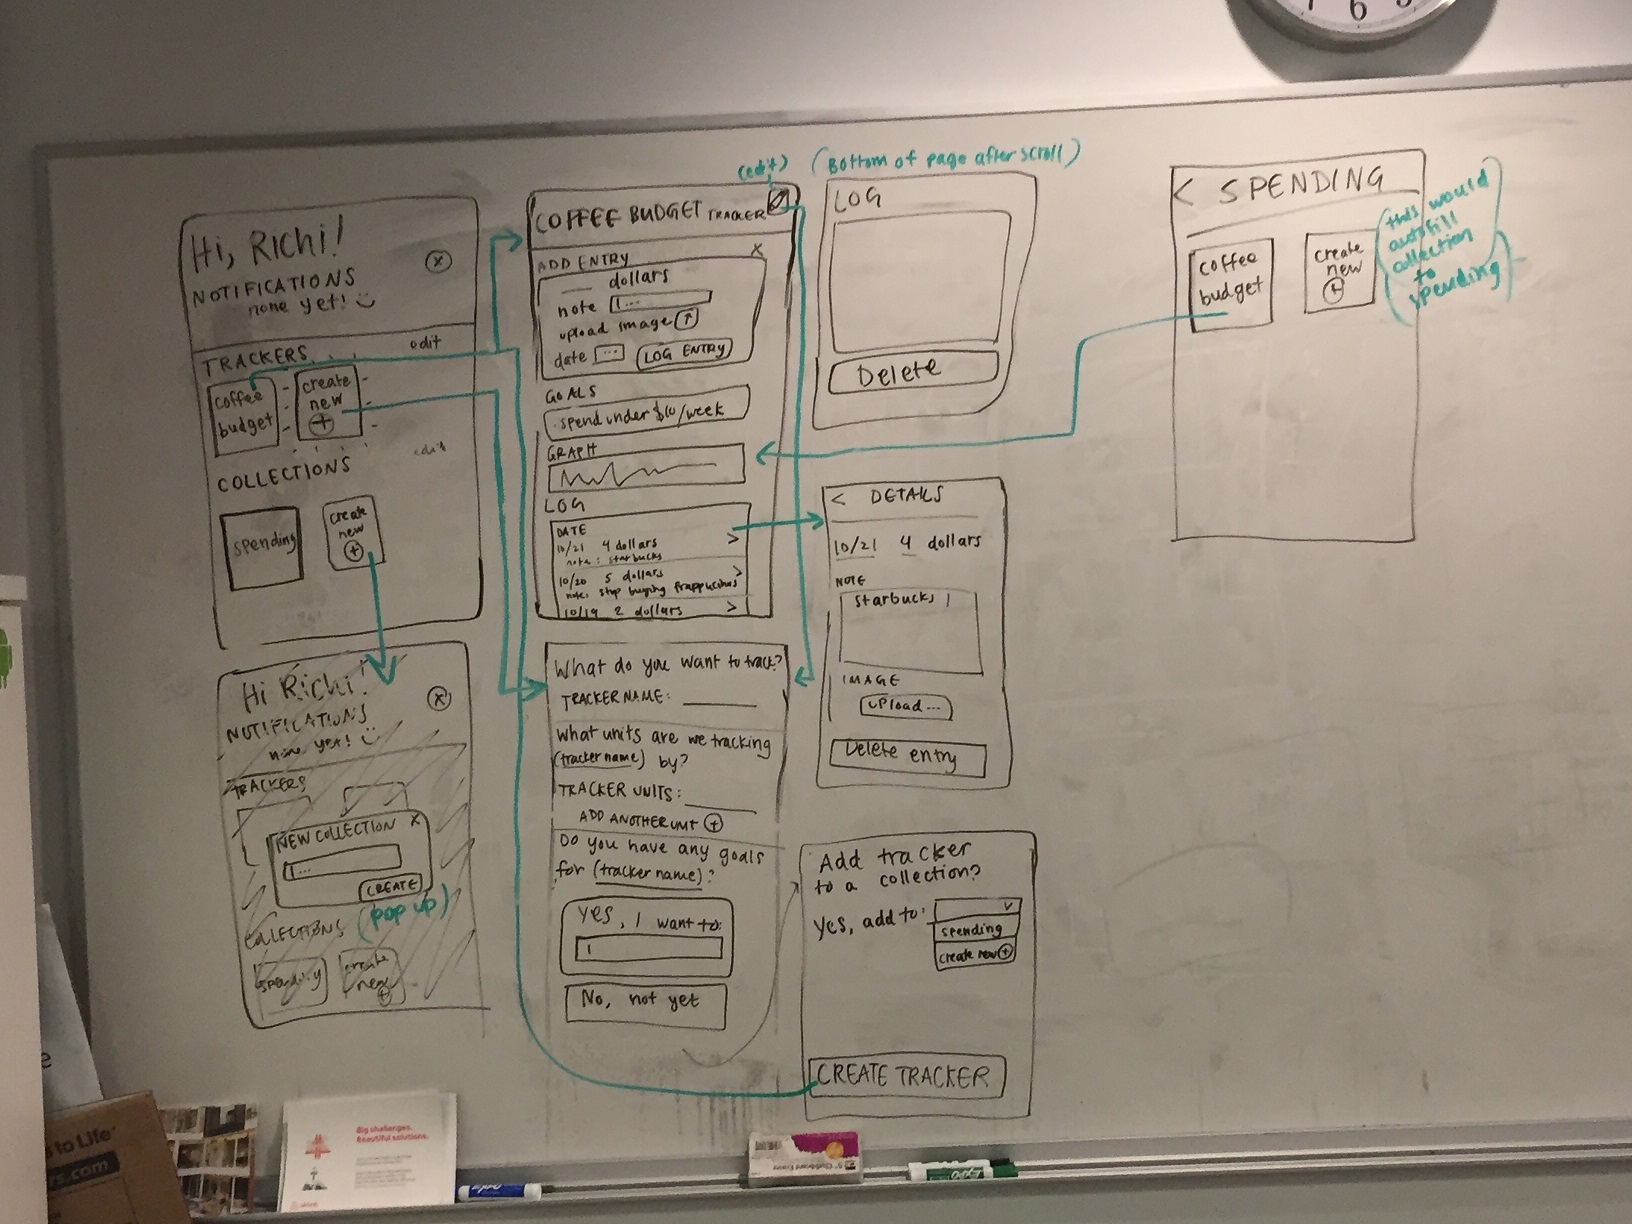 6
Hi, Richi!
NOTIFICATIONS
none yet!
X
TRACKERS
edit
coffee
budget
create
new
+
COLLECTIONS
edit
spending
create
new
+
Hi Richi!
NOTIFICATIONS
none yet!
X
TRACKERS
NEW COLLECTION X
I...
CREATE
(pop up)
COLLECTIONS
spending
create
new
+
(edit)
COFFEE BUDGET TRACKER
ADD ENTRY
X
dollars
note I...
upload image ↑
date ... LOG ENTRY
GOALS
spend under $10/week
GRAPH
LOG
DATE
10/21 4 dollars >
note: starbucks
10/20 5 dollars >
note: stop buying frappuccinos
10/19 2 dollars >
What do you want to track?
TRACKER NAME:
what units are we tracking
(tracker name) by?
TRACKER UNITS:
ADD ANOTHER UNIT +
Do you have any goals
for (tracker name)?
yes, I want to:
No, not yet
(Bottom of page after scroll)
LOG
Delete
< DETAILS
10/21 4 dollars
NOTE
Starbucks
IMAGE
upload...
Delete entry
Add tracker
to a collection?
Yes, add to:
spending
create new +
CREATE TRACKER
< SPENDING
coffee
budget
create
new
+
(this would
autofill
collection
to
spending)
Big challenges.
Beautiful solutions.
to Life
s.com
EXPO